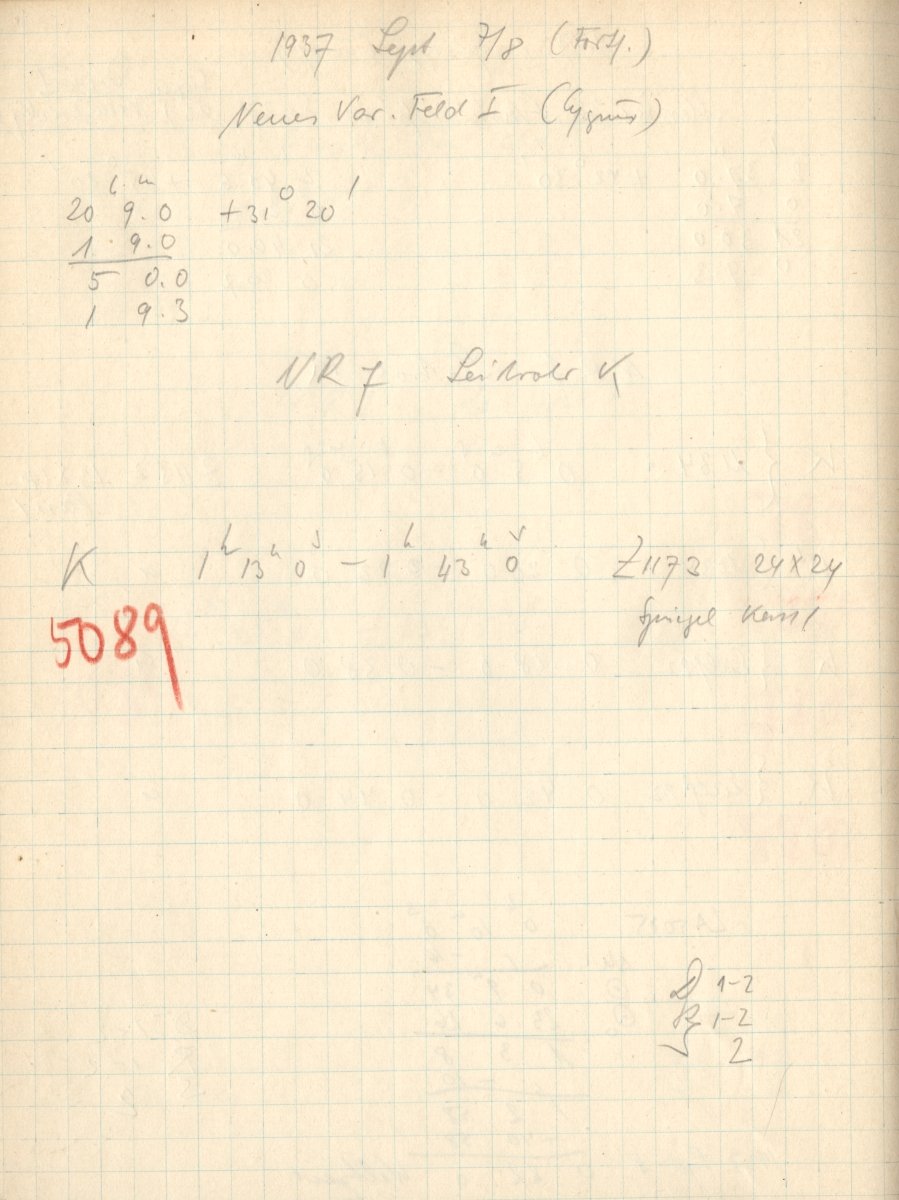 1937 Sept 7/8 (Forts.)
Neues Var. Feld I (Cygnus)
20h 9.0m +31° 20'
1 9.0
5 0.0
1 9.3
NR 7 Leitrohr K
K 1h 13m 0s – 1h 43m 0s Z 1173 24×24
5089 Spiegel Kass
D 1-2
R 1-2
2